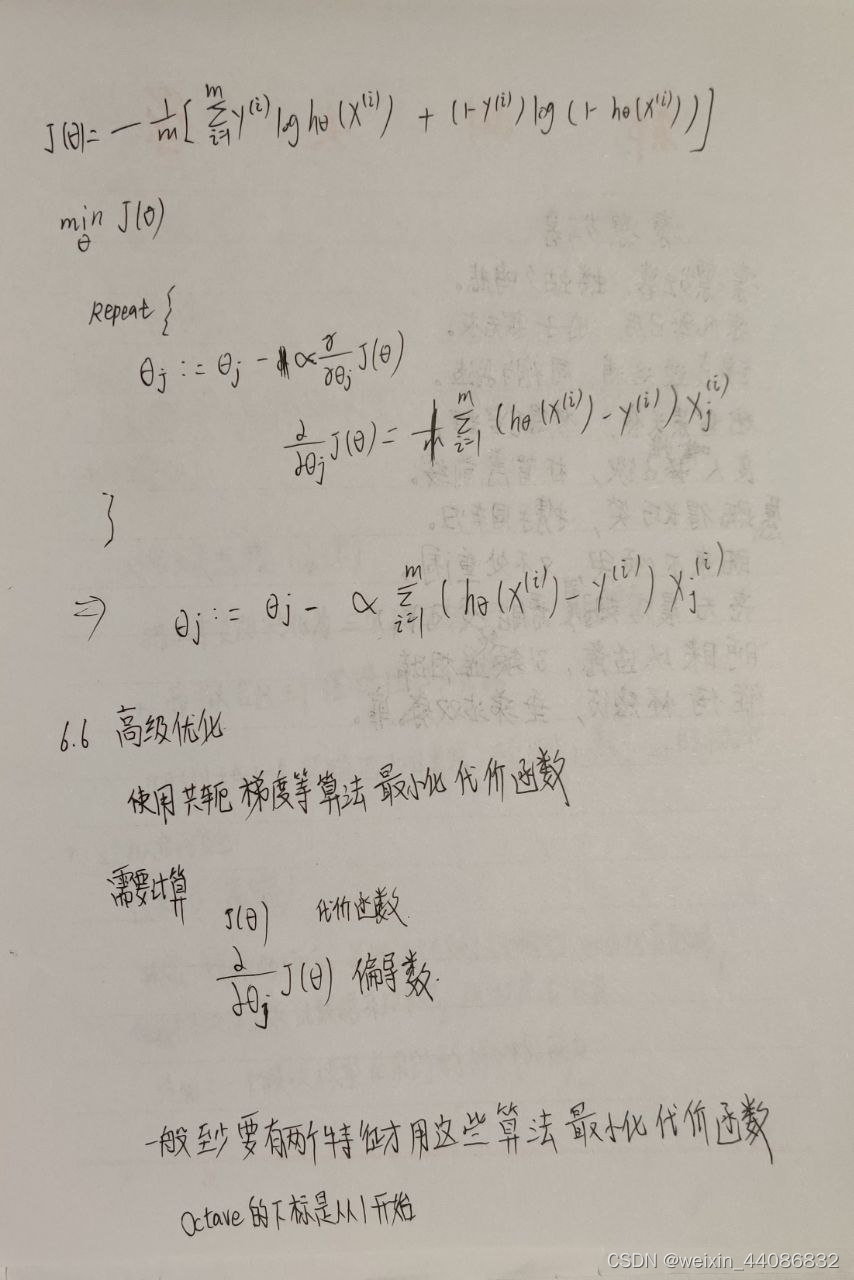 J(θ)= - 1/m [ Σ_{i=1}^{m} y^{(i)} log hθ(x^{(i)}) + (1-y^{(i)}) log (1- hθ(x^{(i)})) ]
min_θ J(θ)
Repeat {
θj := θj - α ∂/∂θj J(θ)
∂/∂θj J(θ) = Σ_{i=1}^{m} (hθ(x^{(i)}) - y^{(i)}) xj^{(i)}
}
⇒ θj := θj - α Σ_{i=1}^{m} (hθ(x^{(i)}) - y^{(i)}) xj^{(i)}
6.6 高级优化
使用共轭梯度等算法最小化代价函数
需要计算
J(θ) 代价函数
∂/∂θj J(θ) 偏导数.
一般至少要有两个特征才用这些算法最小化代价函数
Octave的下标是从1开始
CSDN @weixin_44086832